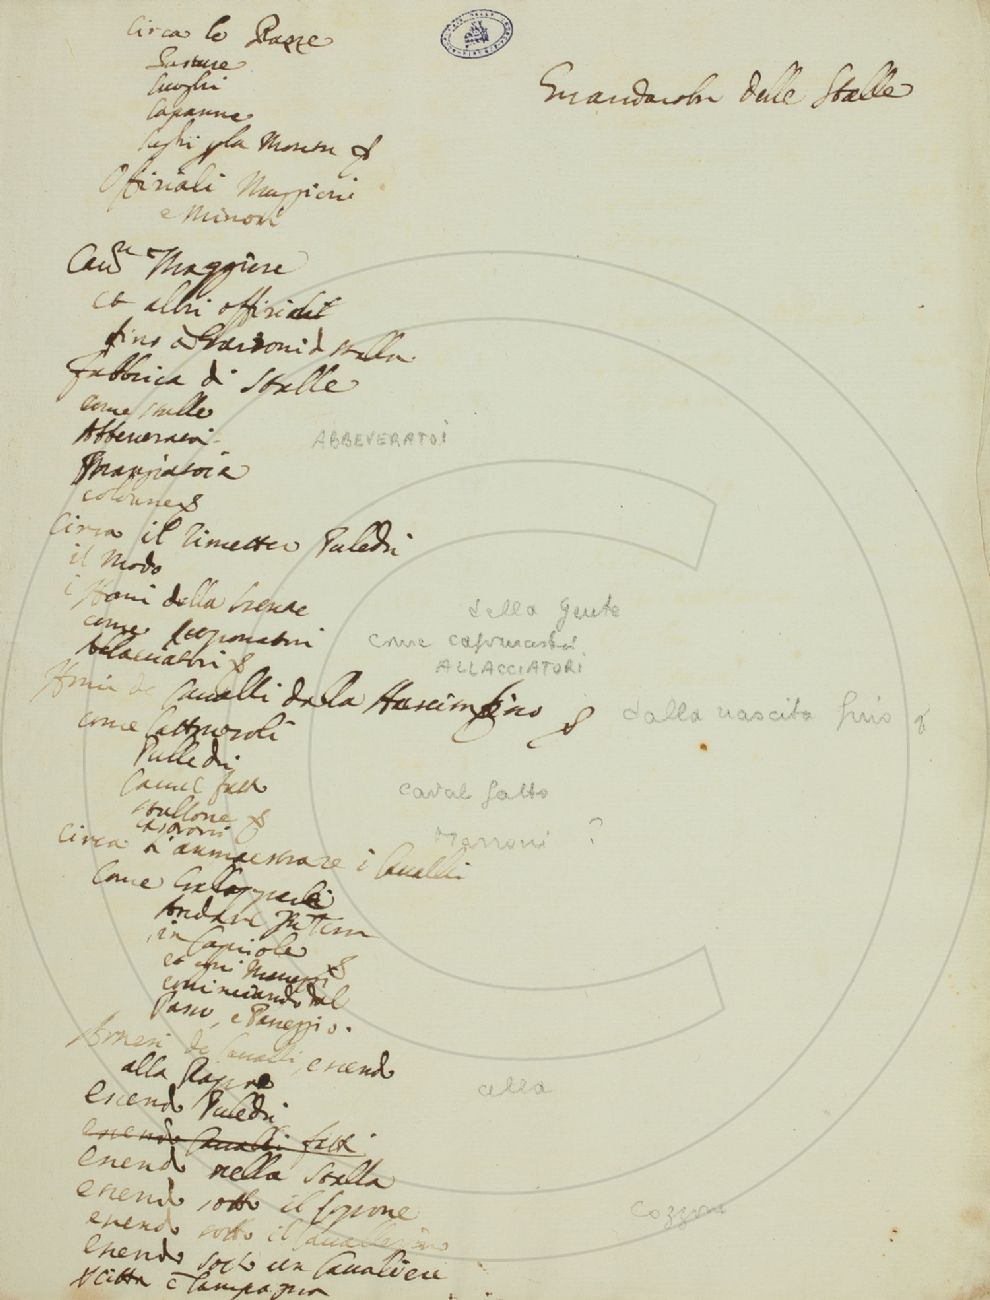 Circa le Razze
Pasture
Luoghi
Capanne
Offitiali Maggiori
e Minori
Maggiore
et altri offitiali
fino a Garzoni d stalla
fabbrica di Stalle
come stalle
Abbeveratoi
Mangiatoia
colonne &
Circa il rimetter Puledri
il Modo
i Nomi della Gente
come
Allacciatori &
Nomi de Cavalli dalla Nascim fino &
come Lattonzoli
Pulledri
Caval fatto
stallone &
Circa l'ammaestrare i Cavalli
Come Galopparli
Andare
in Capriole
et altri Maneggi &
cominciando dal
Passo, e Passeggio.
Arnesi de Cavalli, essendo
alla Razza
essendo Puledri
essendo Cavalli fatti
essendo nella Stalla
essendo sotto il Cozzone
essendo sotto il Cavallerizzo
essendo sotto un Cavaliere
Città e Campagna
Guardaroba delle Stalle
ABBEVERATOI
della Gente
come
ALLACCIATORI
dalla nascita fino &
caval fatto
?
alla
Cozzone